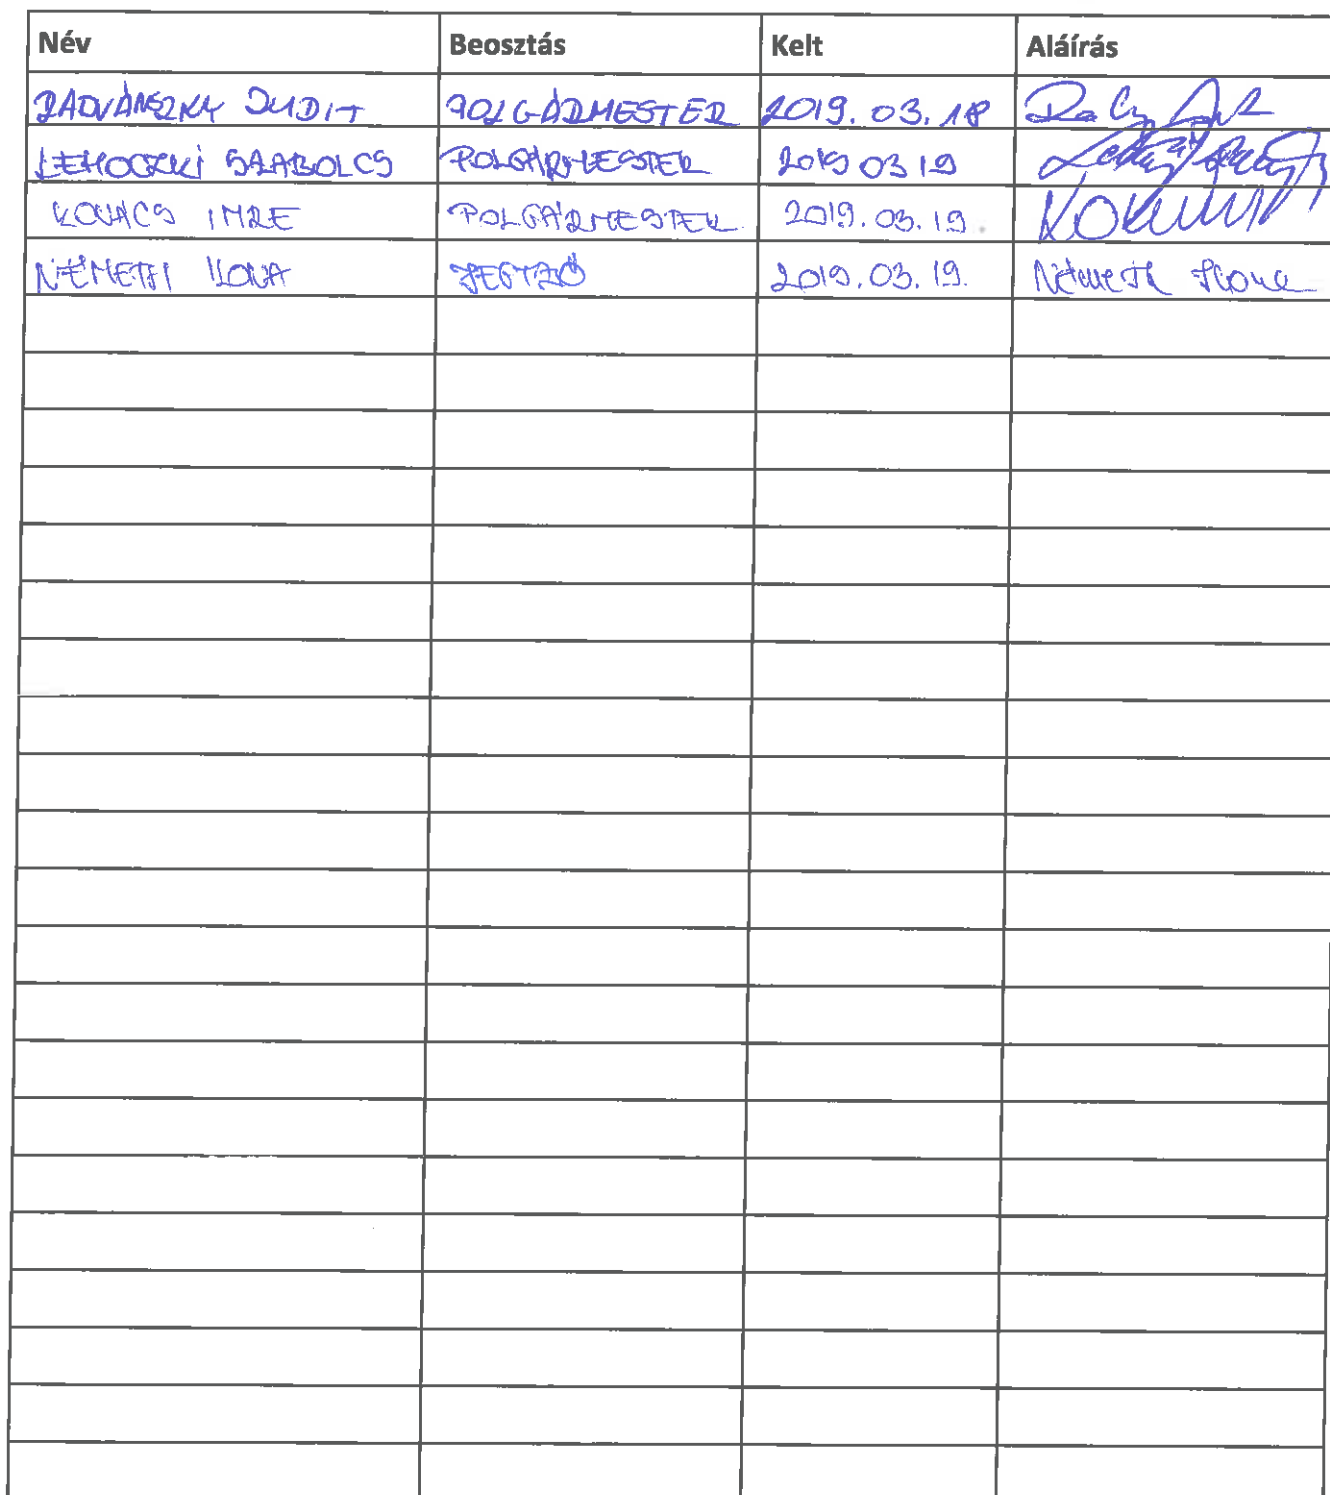 Név Beosztás Kelt Aláírás
RADVÁNSZKY JUDIT POLGÁRMESTER 2019. 03. 18
LEHOCZKI SZABOLCS POLGÁRMESTER 2019 03 19
KOVÁCS IMRE POLGÁRMESTER 2019. 03. 19.
NÉMETH ILONA JEGYZŐ 2019. 03. 19. Németh Ilona